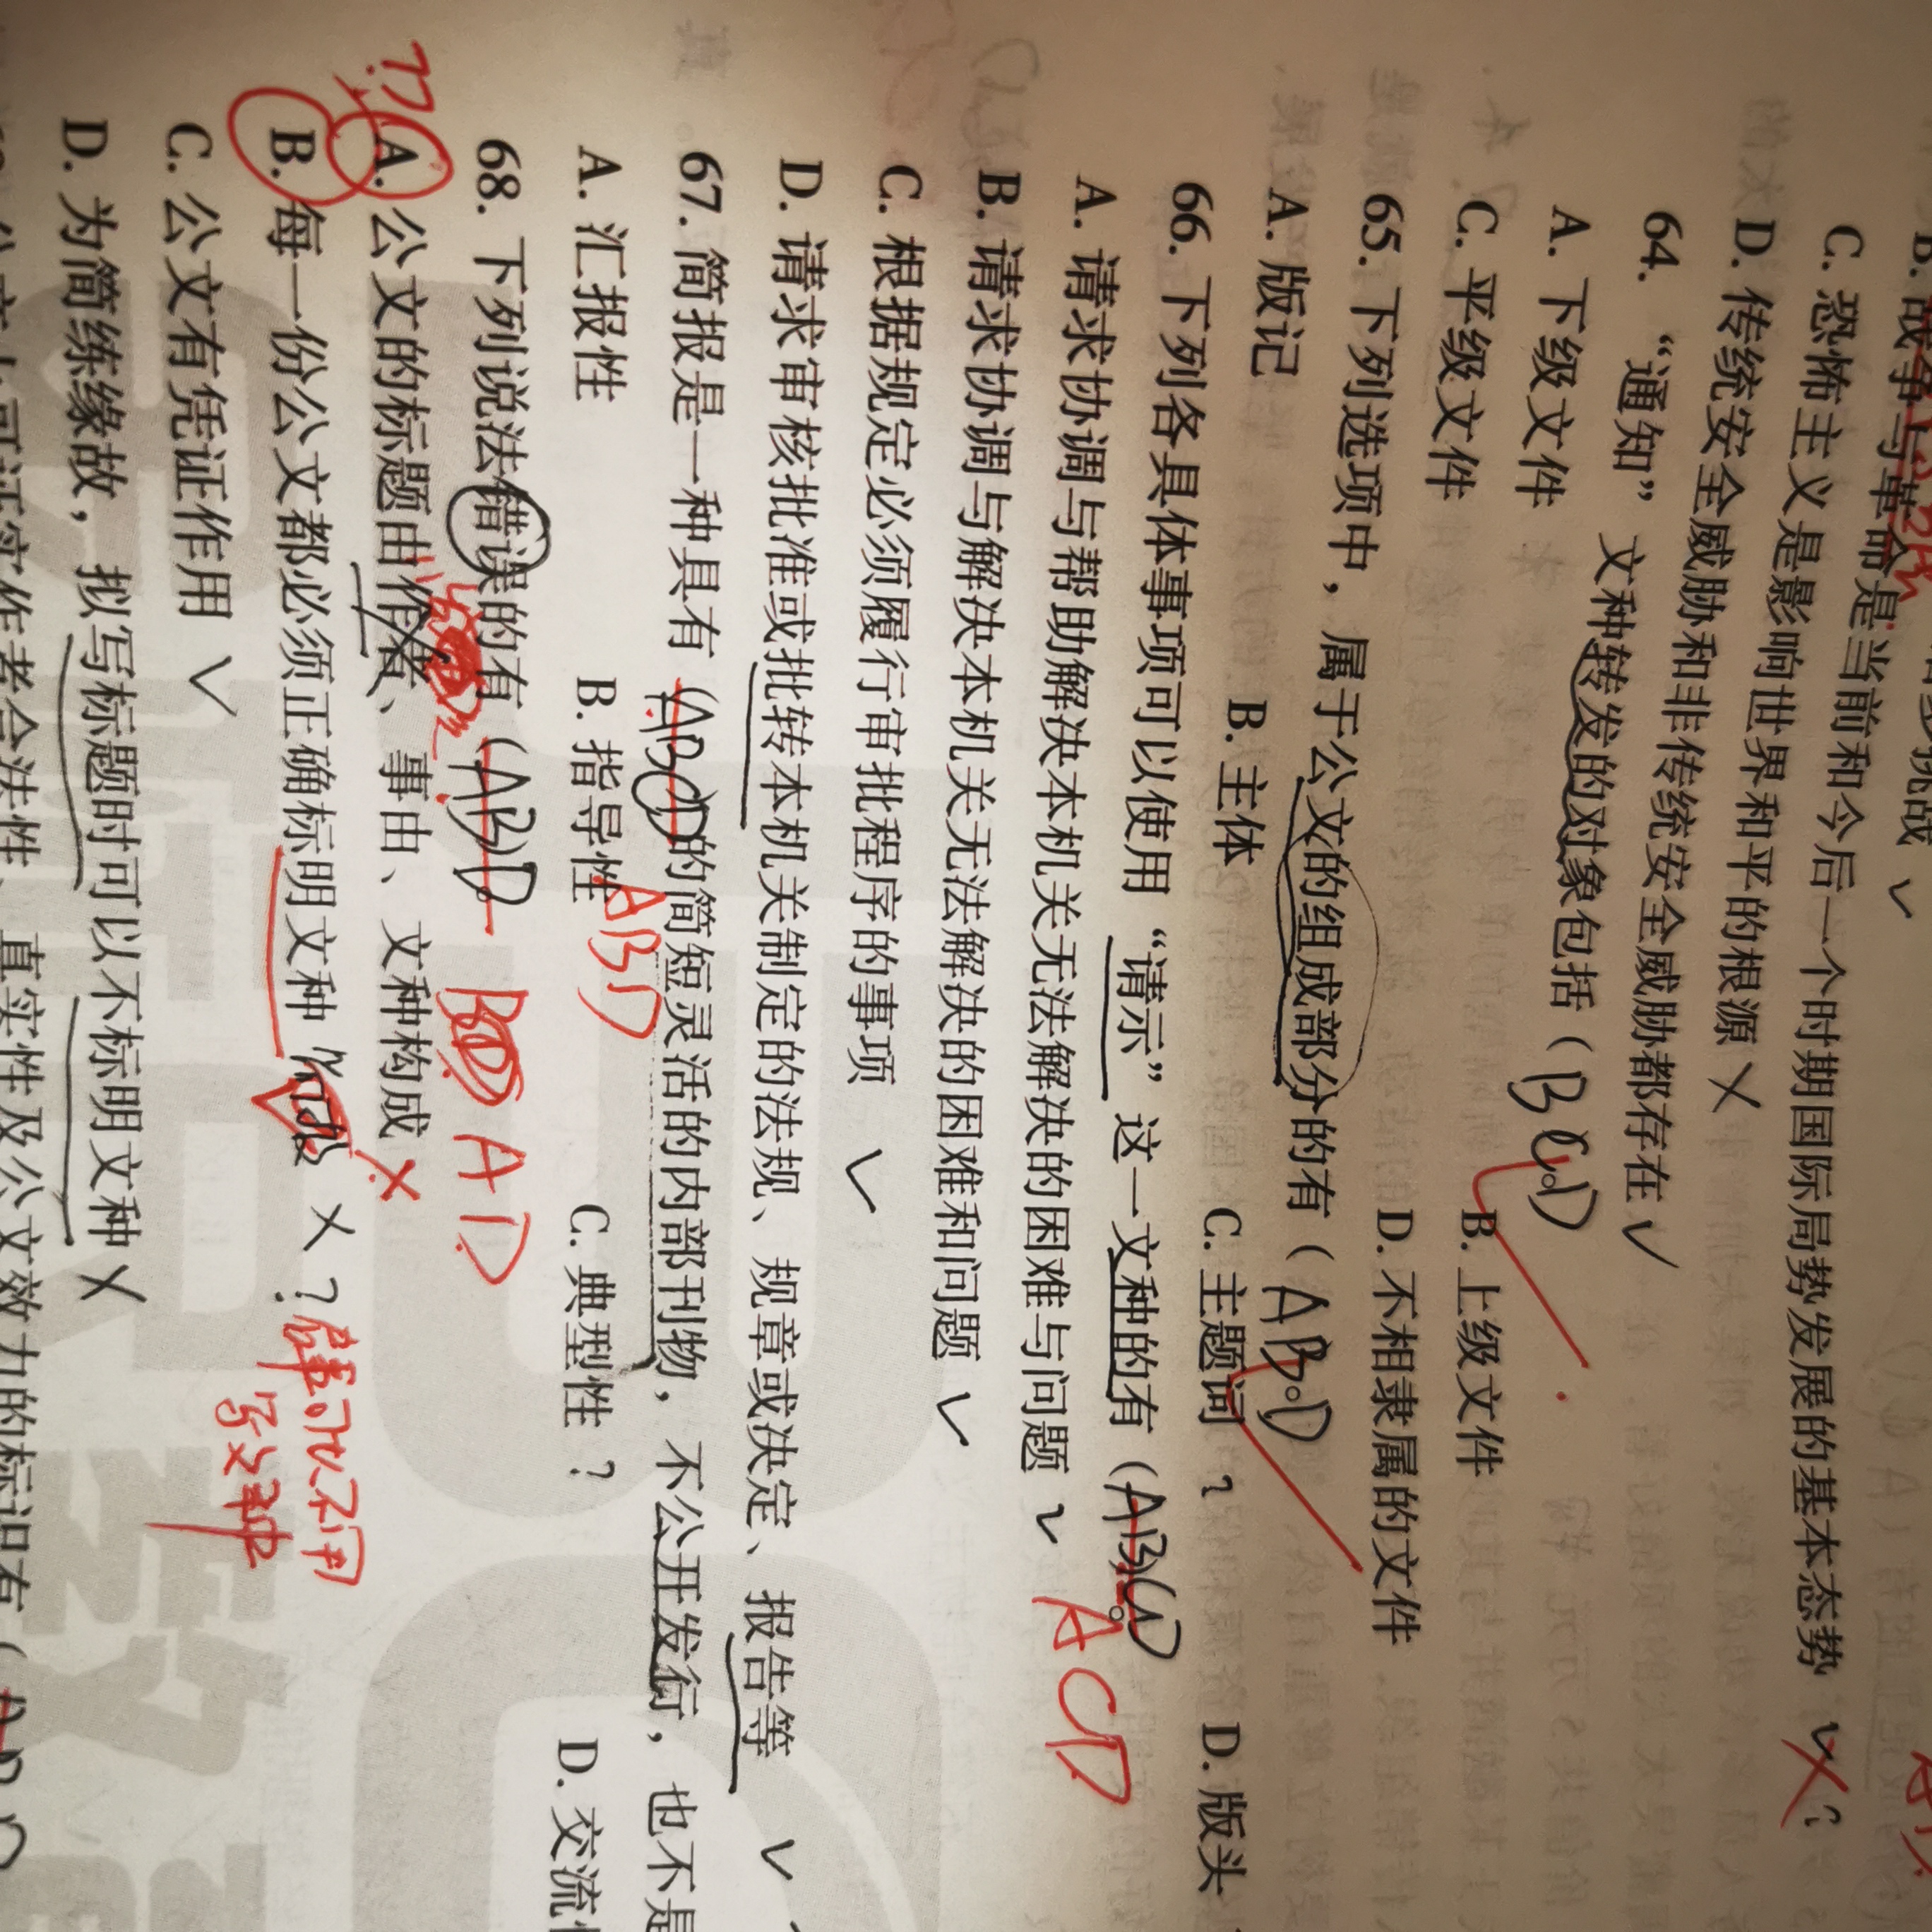 B. 战争与革命是当前和今后一个时期国际局势发展的基本态势
C. 恐怖主义是影响世界和平的根源 ×
D. 传统安全威胁和非传统安全威胁都存在 √
64. “通知”文种转发的对象包括（ BCD
A. 下级文件 B. 上级文件
C. 平级文件 D. 不相隶属的文件
65. 下列选项中，属于公文的组成部分的有（ ABD
A. 版记 B. 主体 C. 主题词 ? D. 版头
66. 下列各具体事项可以使用“请示”这一文种的有（ABCD ACD
A. 请求协调与帮助解决本机关无法解决的困难与问题 √
B. 请求协调与解决本机关无法解决的困难和问题 √
C. 根据规定必须履行审批程序的事项 √
D. 请求审核批准或批转本机关制定的法规、规章或决定、报告等 √
67. 简报是一种具有（ABCD）的简短灵活的内部刊物，不公开发行，也不是
ABD
A. 汇报性 B. 指导性 C. 典型性 ? D. 交流
68. 下列说法错误的有（ABD AD
?
A. 公文的标题由作者、事由、文种构成 ×
B. 每一份公文都必须正确标明文种 × ?
C. 公文有凭证作用 √
D. 为简练缘故，拟写标题时可以不标明文种 ×
可证实作者合法性、真实性及公文效力的标识有（